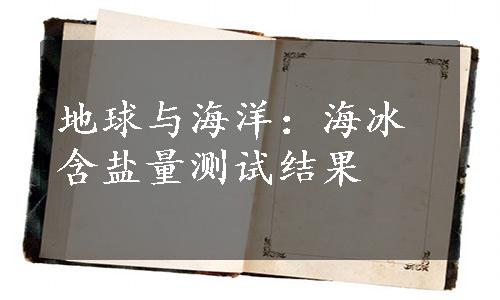 地球与海洋：海冰
含盐量测试结果